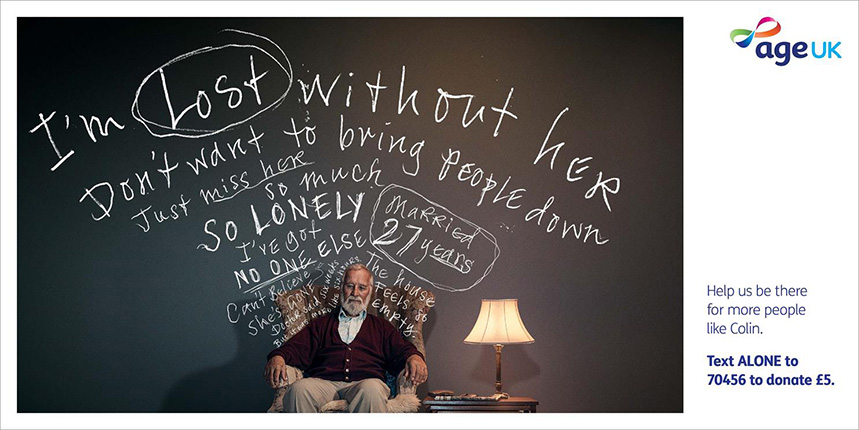 age UK
I'm Lost without HER
Don't want to bring PEOPLE down
Just miss HER
so much
SO LONELY
MARRIED
27 years
I'VE GOT
NO ONE ELSE
Can't Believe
She's gone
The house
FEELS so
empty.
Help us be there
for more people
like Colin.
Text ALONE to
70456 to donate £5.